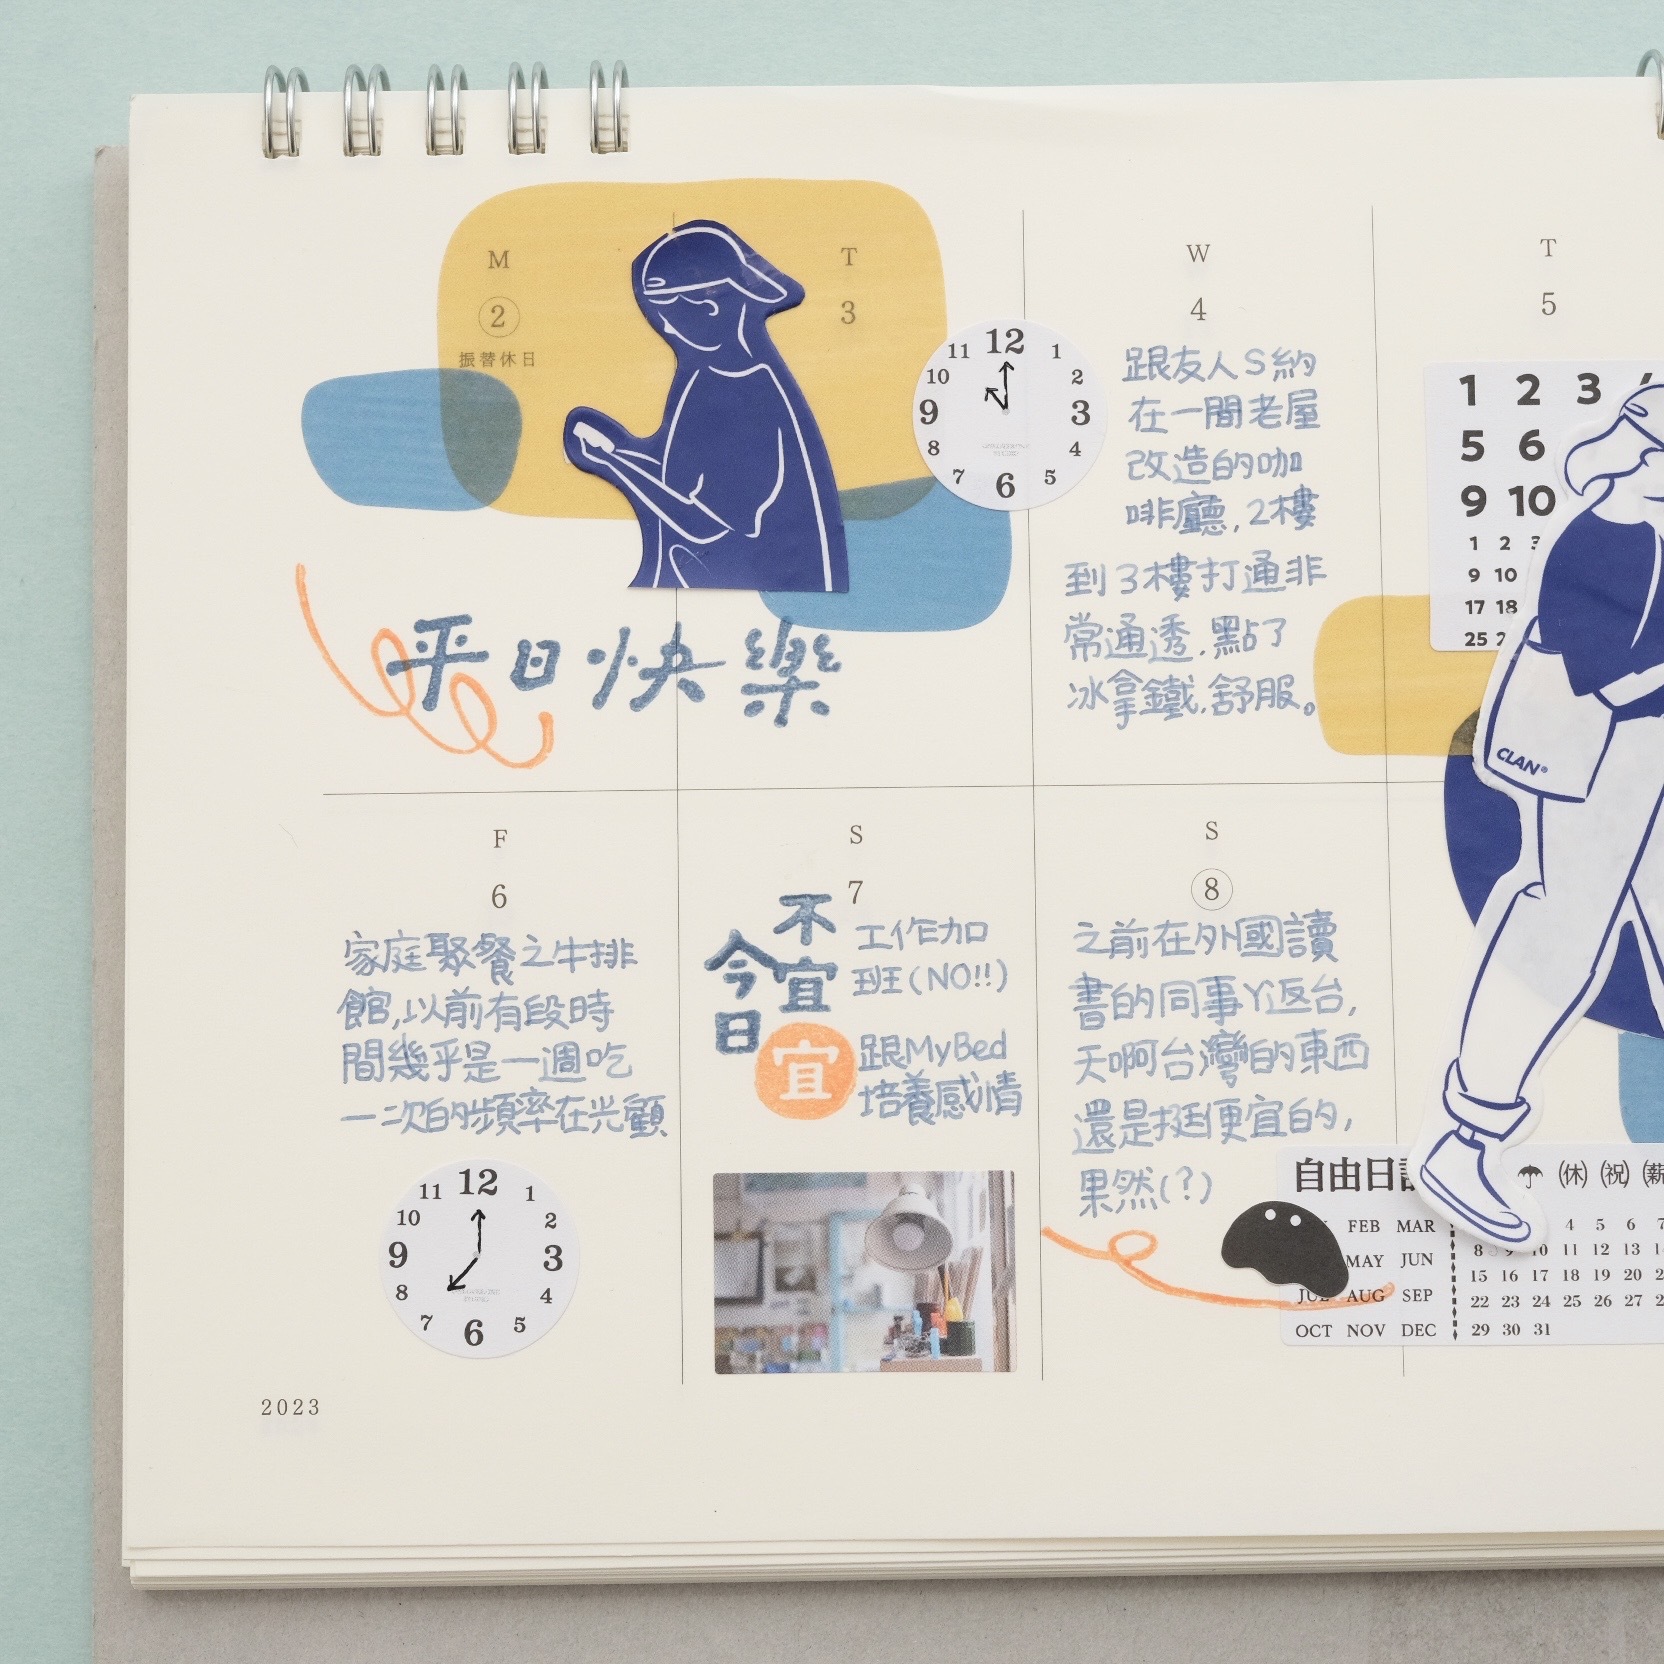 M
②
振替休日
T
3
12
11 1
10 2
9 3
8 4
7 5
6
W
4
跟友人S約
在一間老屋
改造的咖
啡廳,2樓
到3樓打通非
常通透,點了
冰拿鐵,舒服。
T
5
1 2 3
5 6
9 10
1 2
9 10
17 18
25
CLAN®
平日快樂
F
6
家庭聚餐之牛排
館,以前有段時
間幾乎是一週吃
一次的頻率在光顧
12
11 1
10 2
9 3
8 4
7 5
6
S
7
今日
不宜
工作加
班(NO!!)
宜
跟MyBed
培養感情
S
⑧
之前在外國讀
書的同事Y返台,
天啊台灣的東西
還是挺便宜的,
果然(?)
自由日
(休) (祝)
FEB MAR
MAY JUN
JUL AUG SEP
OCT NOV DEC
4 5 6 7
8 9 10 11 12 13
15 16 17 18 19 20
22 23 24 25 26 27
29 30 31
2023